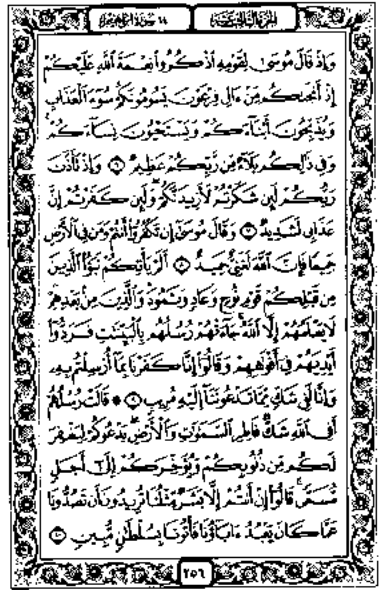 الجزء الثالث عشر ١٤ سورة إبراهيم
وَإِذْ قَالَ مُوسَىٰ لِقَوْمِهِ ٱذْكُرُوا۟ نِعْمَةَ ٱللَّهِ عَلَيْكُمْ
إِذْ أَنجَىٰكُم مِّنْ ءَالِ فِرْعَوْنَ يَسُومُونَكُمْ سُوٓءَ ٱلْعَذَابِ
وَيُذَبِّحُونَ أَبْنَآءَكُمْ وَيَسْتَحْيُونَ نِسَآءَكُمْ ۚ
وَفِى ذَٰلِكُم بَلَآءٌ مِّن رَّبِّكُمْ عَظِيمٌ ٦ وَإِذْ تَأَذَّنَ
رَبُّكُمْ لَئِن شَكَرْتُمْ لَأَزِيدَنَّكُمْ ۖ وَلَئِن كَفَرْتُمْ إِنَّ
عَذَابِى لَشَدِيدٌ ٧ وَقَالَ مُوسَىٰٓ إِن تَكْفُرُوٓا۟ أَنتُمْ وَمَن فِى ٱلْأَرْضِ
جَمِيعًا فَإِنَّ ٱللَّهَ لَغَنِىٌّ حَمِيدٌ ٨ أَلَمْ يَأْتِكُمْ نَبَؤُا۟ ٱلَّذِينَ
مِن قَبْلِكُمْ قَوْمِ نُوحٍ وَعَادٍ وَثَمُودَ ۛ وَٱلَّذِينَ مِنۢ بَعْدِهِمْ ۛ
لَا يَعْلَمُهُمْ إِلَّا ٱللَّهُ ۚ جَآءَتْهُمْ رُسُلُهُم بِٱلْبَيِّنَٰتِ فَرَدُّوٓا۟
أَيْدِيَهُمْ فِىٓ أَفْوَٰهِهِمْ وَقَالُوٓا۟ إِنَّا كَفَرْنَا بِمَآ أُرْسِلْتُم بِهِۦ
وَإِنَّا لَفِى شَكٍّ مِّمَّا تَدْعُونَنَآ إِلَيْهِ مُرِيبٍ ٩ ۞ قَالَتْ رُسُلُهُمْ
أَفِى ٱللَّهِ شَكٌّ فَاطِرِ ٱلسَّمَٰوَٰتِ وَٱلْأَرْضِ ۖ يَدْعُوكُمْ لِيَغْفِرَ
لَكُم مِّن ذُنُوبِكُمْ وَيُؤَخِّرَكُمْ إِلَىٰٓ أَجَلٍ
مُّسَمًّى ۚ قَالُوٓا۟ إِنْ أَنتُمْ إِلَّا بَشَرٌ مِّثْلُنَا تُرِيدُونَ أَن تَصُدُّونَا
عَمَّا كَانَ يَعْبُدُ ءَابَآؤُنَا فَأْتُونَا بِسُلْطَٰنٍ مُّبِينٍ ١٠
٢٥٦